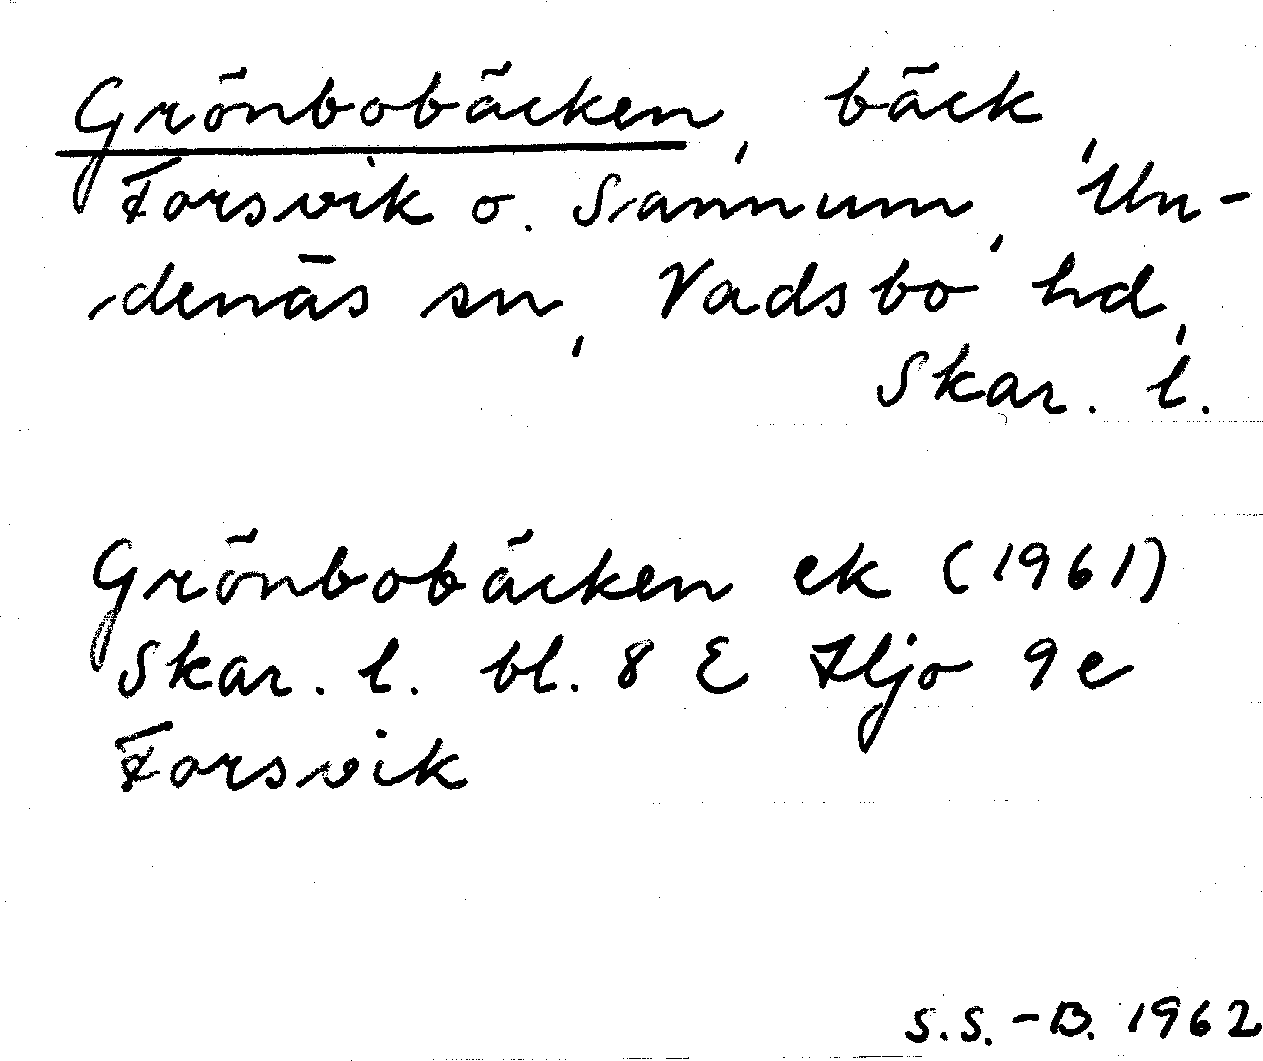 Grönbobäcken, bäck,
Forsvik o. Sannum, Un-
denäs sn, Vadsbo hd,
Skar. l.
Grönbobäcken ek (1961)
Skar. l. bl. 8 E Hjo 9e
Forsvik
S.S.-B. 1962